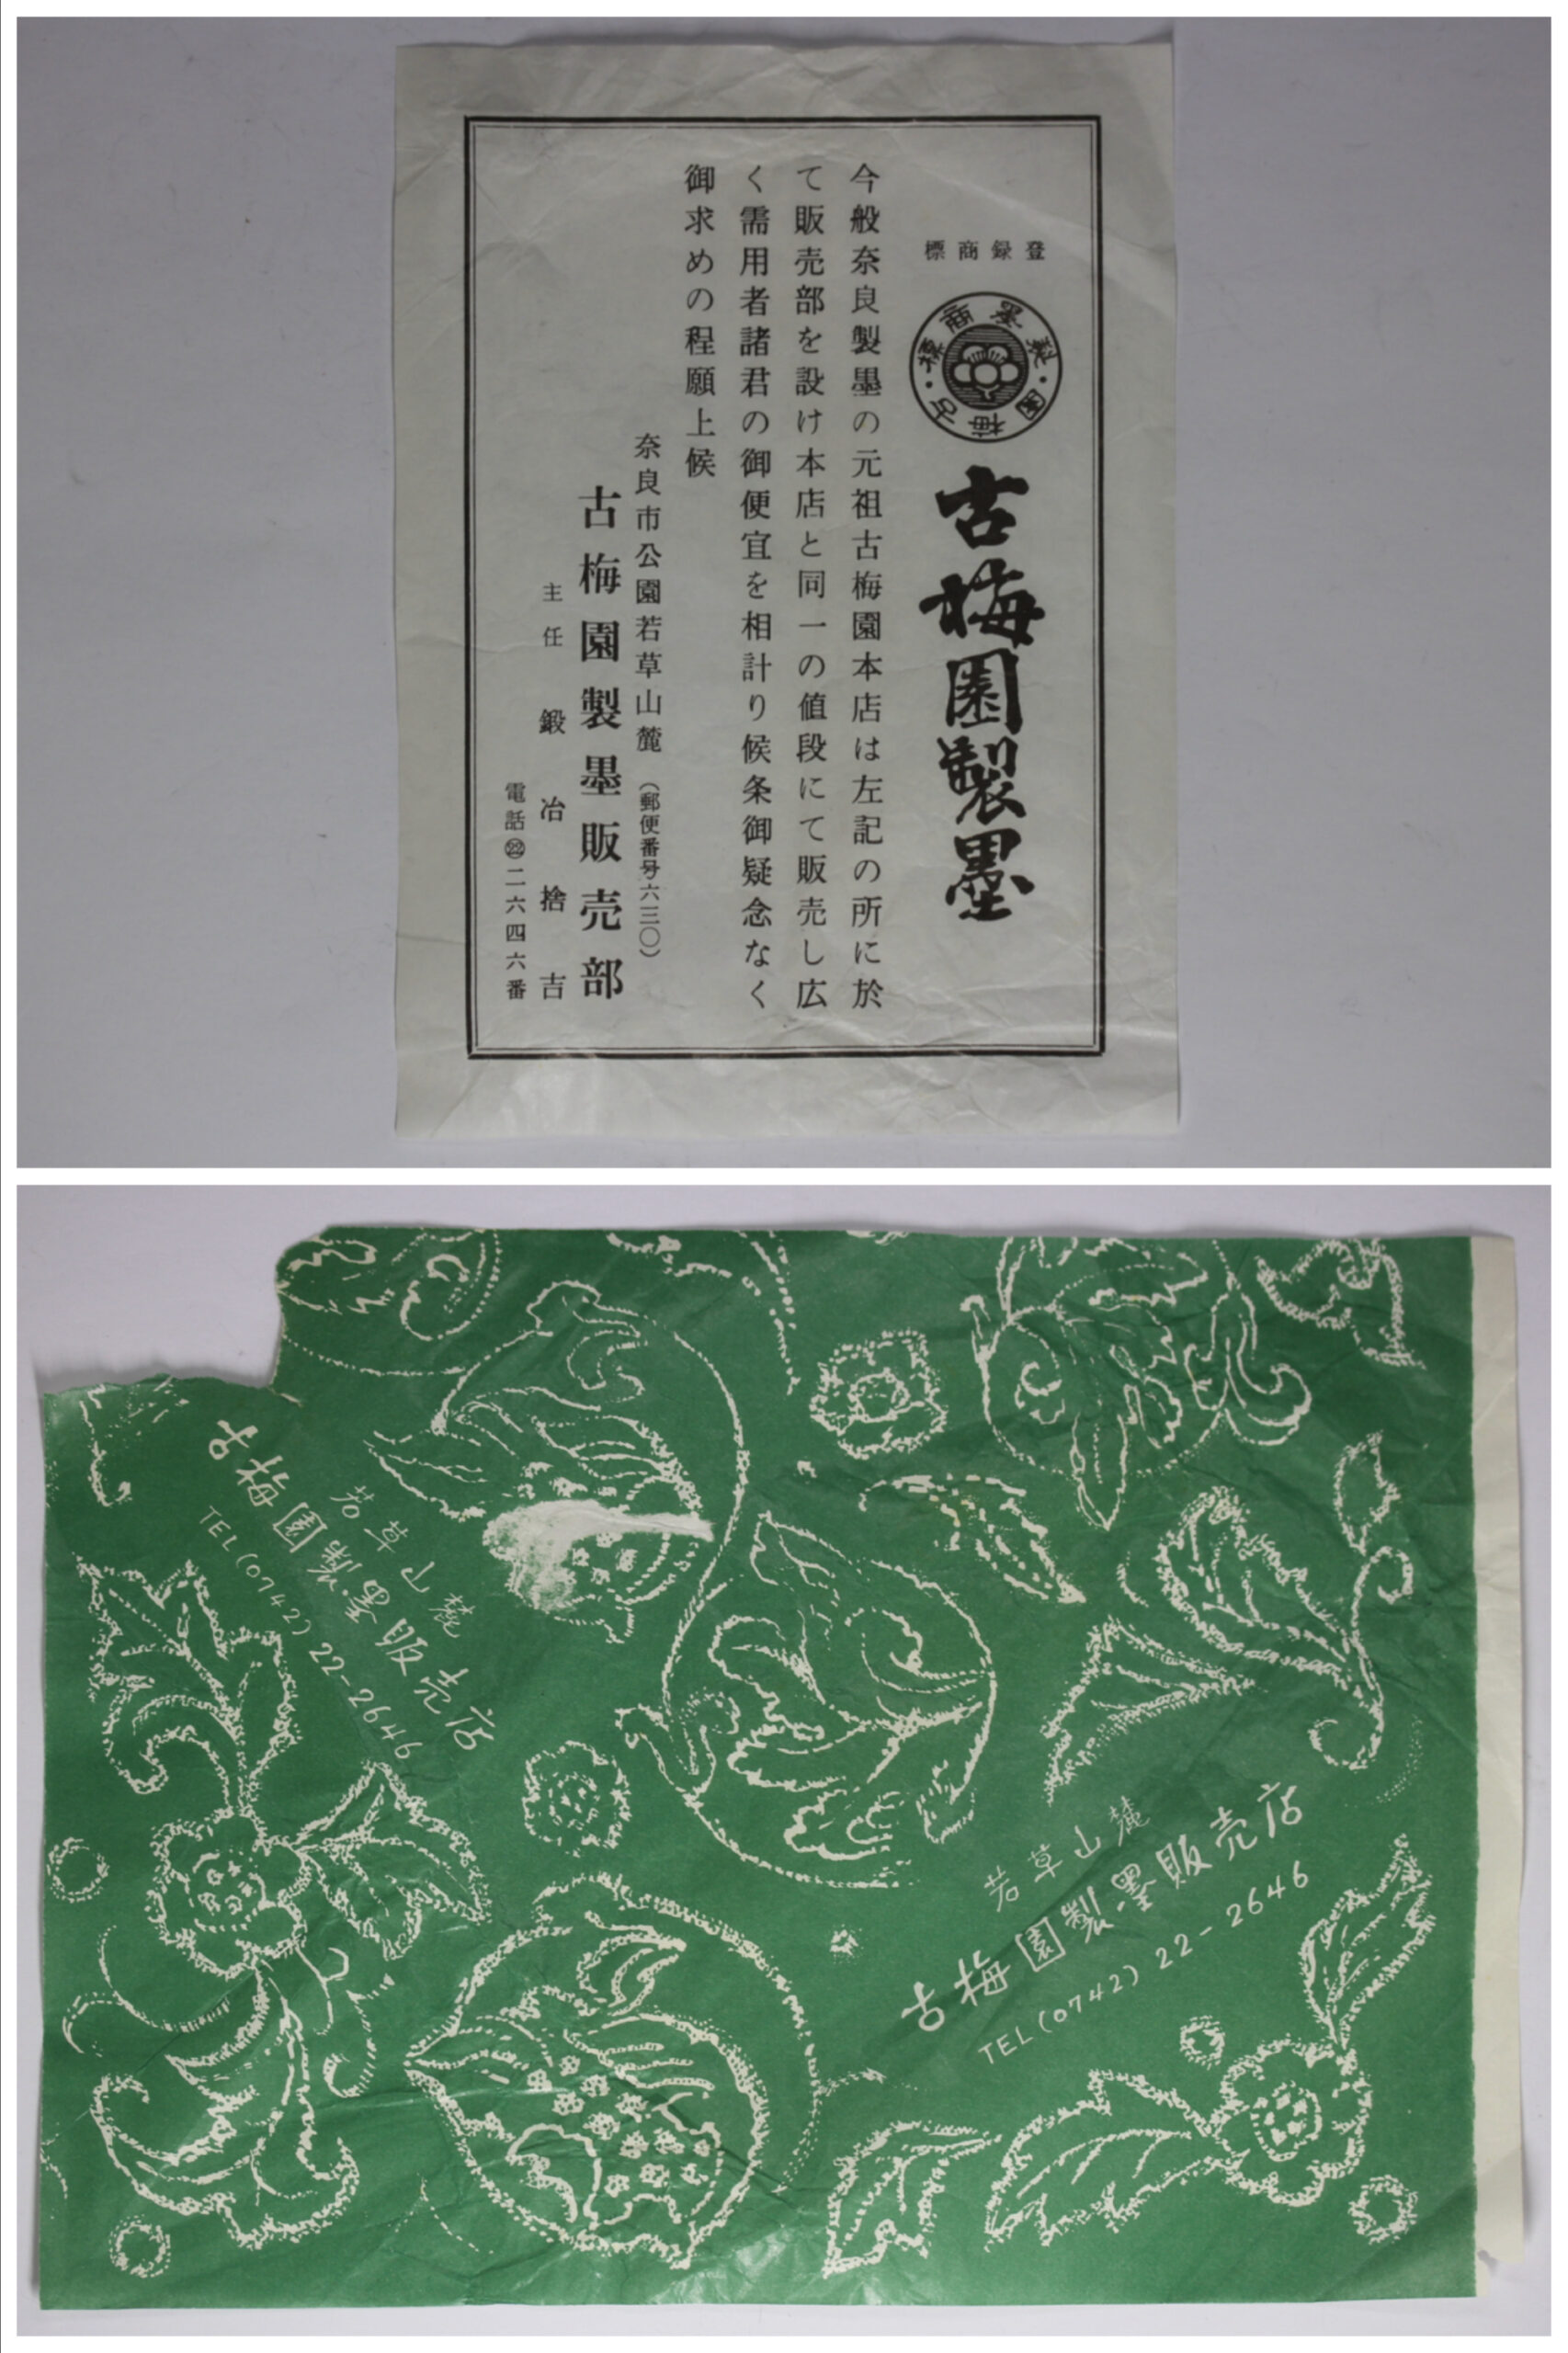 登録商標
製墨商標・古梅園・
古梅園製墨
今般奈良製墨の元祖古梅園本店は左記の所に於
て販売部を設け本店と同一の値段にて販売し広
く需用者諸君の御便宜を相計り候条御疑念なく
御求めの程願上候
奈良市公園若草山麓(郵便番号六三〇)
古梅園製墨販売部
主任 鍛冶捨吉
電話㉒二六四六番
若草山麓
古梅園製墨販売店
TEL(0742)22-2646
若草山麓
古梅園製墨販売店
TEL(0742)22-2646